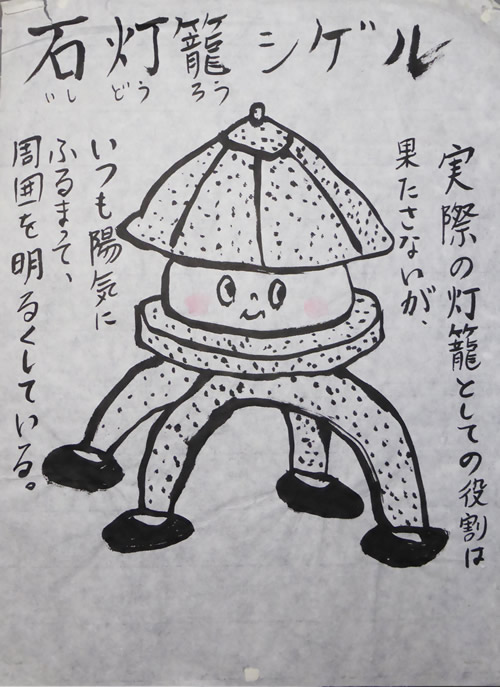 石灯籠シゲル
いし どう ろう
実際の灯籠としての役割は
果たさないが、
いつも陽気に
ふるまって、
周囲を明るくしている。